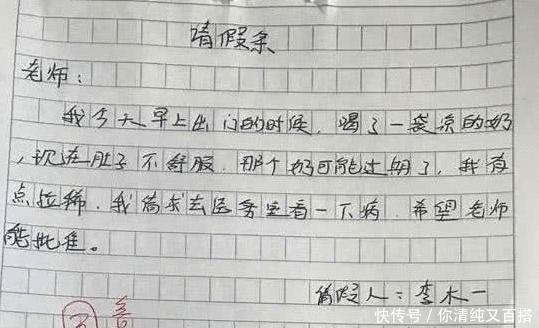 请假条
老师：
我今天早上出门的时候，喝了一袋凉的奶
，现在肚子不舒服，那个奶可能过期了，我有
点拉稀，我请求去医务室看一下病，希望老师
能批准。
请假人：李木一
快传号/你清纯又百搭